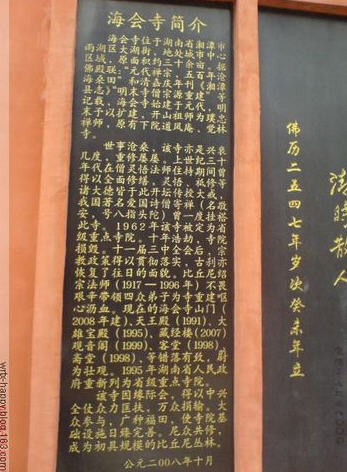 海会寺简介
海会寺位于湖南省湘潭市
雨湖区大湖街,地处城市中心
区域,原面积约十余亩。据
佛殿联:"元代禅宗,五百年沧
海桑田"和清嘉庆年刊《湘潭
县志》"明末寺僧宗源重建"等
记载,海会寺始建于元代,明
末予以扩建,开山祖师为璞忠
禅师,原有下院道风庵、爱林
寺。
世事沧桑,该寺亦是兴衰
几度,重修屡屡。上世纪三十
年代在僧灵悟法师住持期间修
得以全面修缮,灵悟、祇修等
诸大德皆于此开坛传授大戒,
我国著名爱国诗僧寄禅(名敬
安,号八指头陀)曾一度挂褡
此寺。1962年该寺被定为省
级重点寺院。十年浩劫,寺院
损毁。十一届三中全会后,宗
教政策得以贯彻落实,古刹亦
恢复了往日的面貌。比丘尼绍
宗法师(1917—1996年)不畏
艰辛带领四众弟子为寺重建呕
心沥血。现在的海会寺山门(
2008年建)、天王殿(1991)、大
雄宝殿(1995)、藏经楼(2007)
观音阁(1999)、客堂(1998)、
斋堂(1998)、等错落有致,蔚
为壮观。1995年湖南省人民政
府重新列为省级重点寺院。
该寺因缘际会,得以中兴
全仗众力匡扶,万众捐输。大
众参与,广种福田,使寺院基
础设施日臻完善。尼众共修,
成为初具规模的比丘尼丛林。
公元二00八年十月
佛历二五四七年岁次癸未年立
清时散人
wtb-happy.blog.163.com